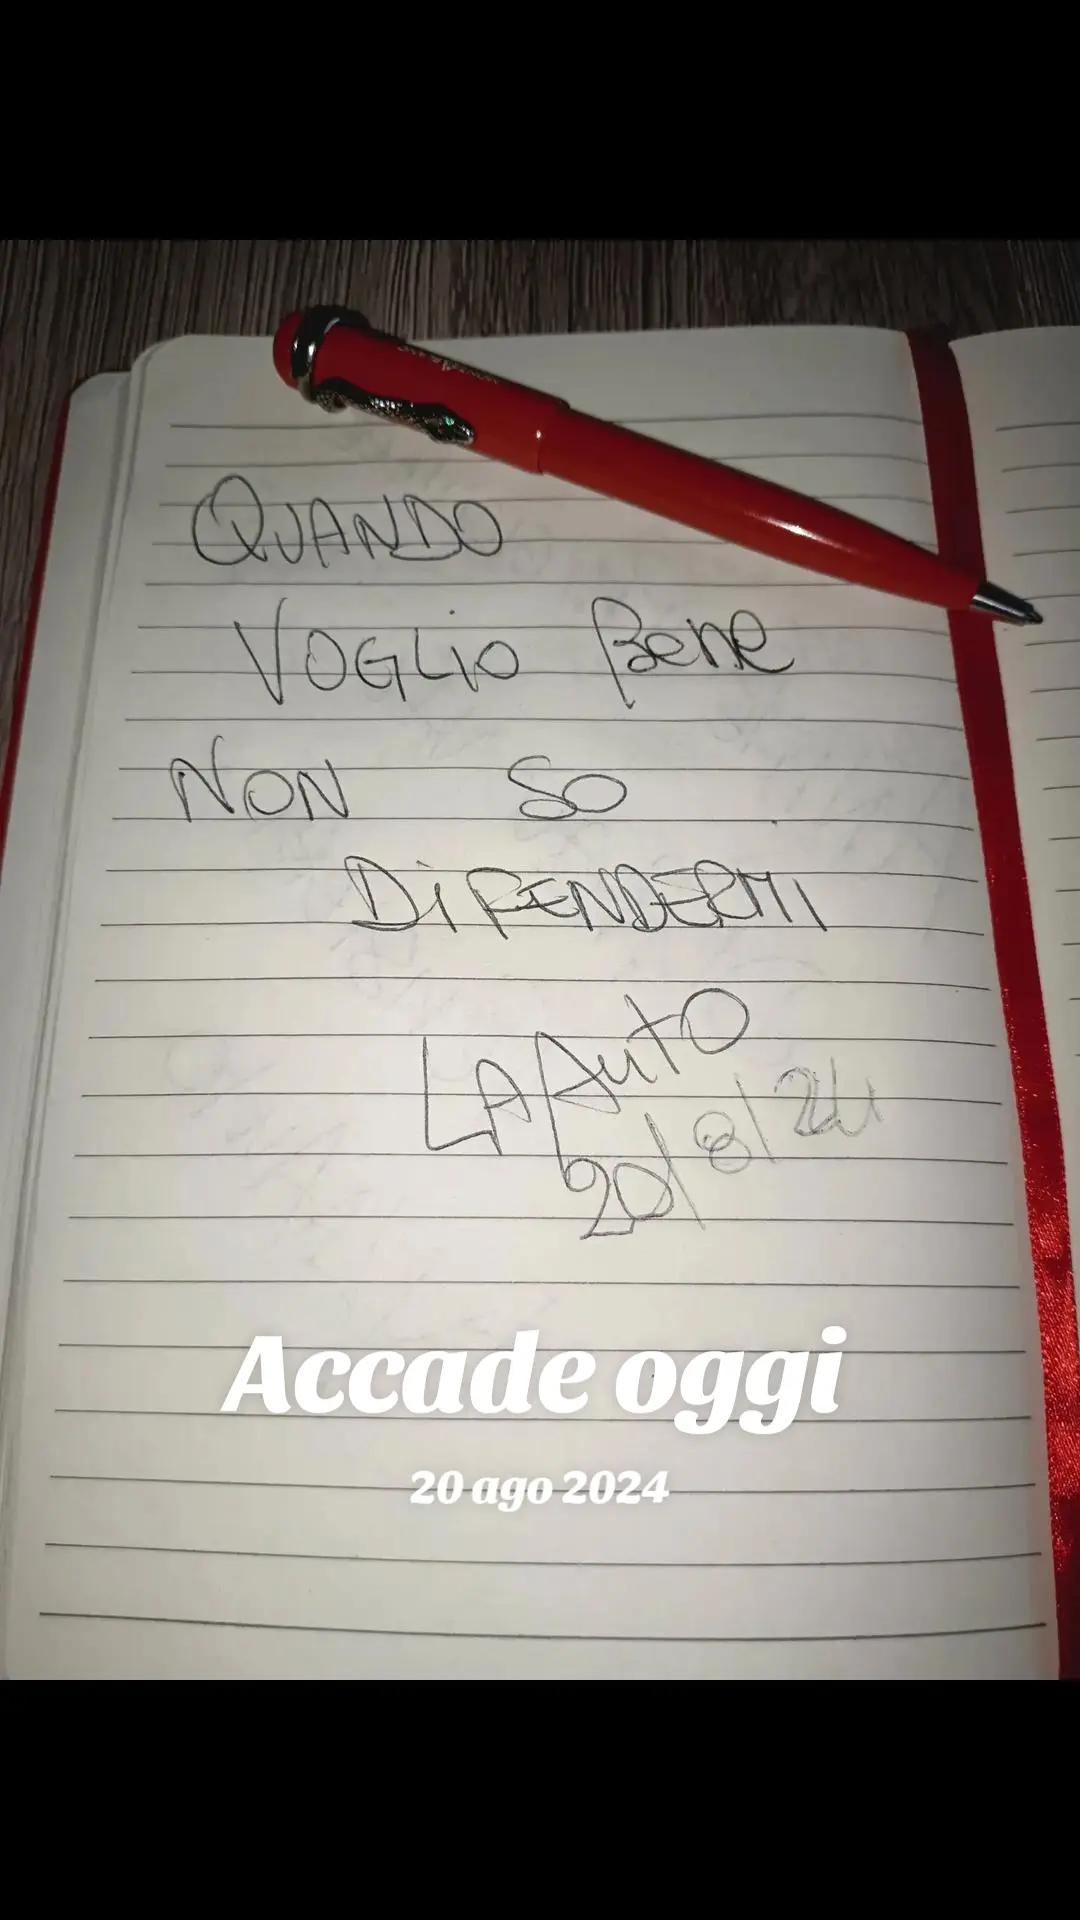 QUANDO
VOGLiO Bene
NON SO
DiFENDERMI
LA AutO
20/8/24
Accade oggi
20 ago 2024